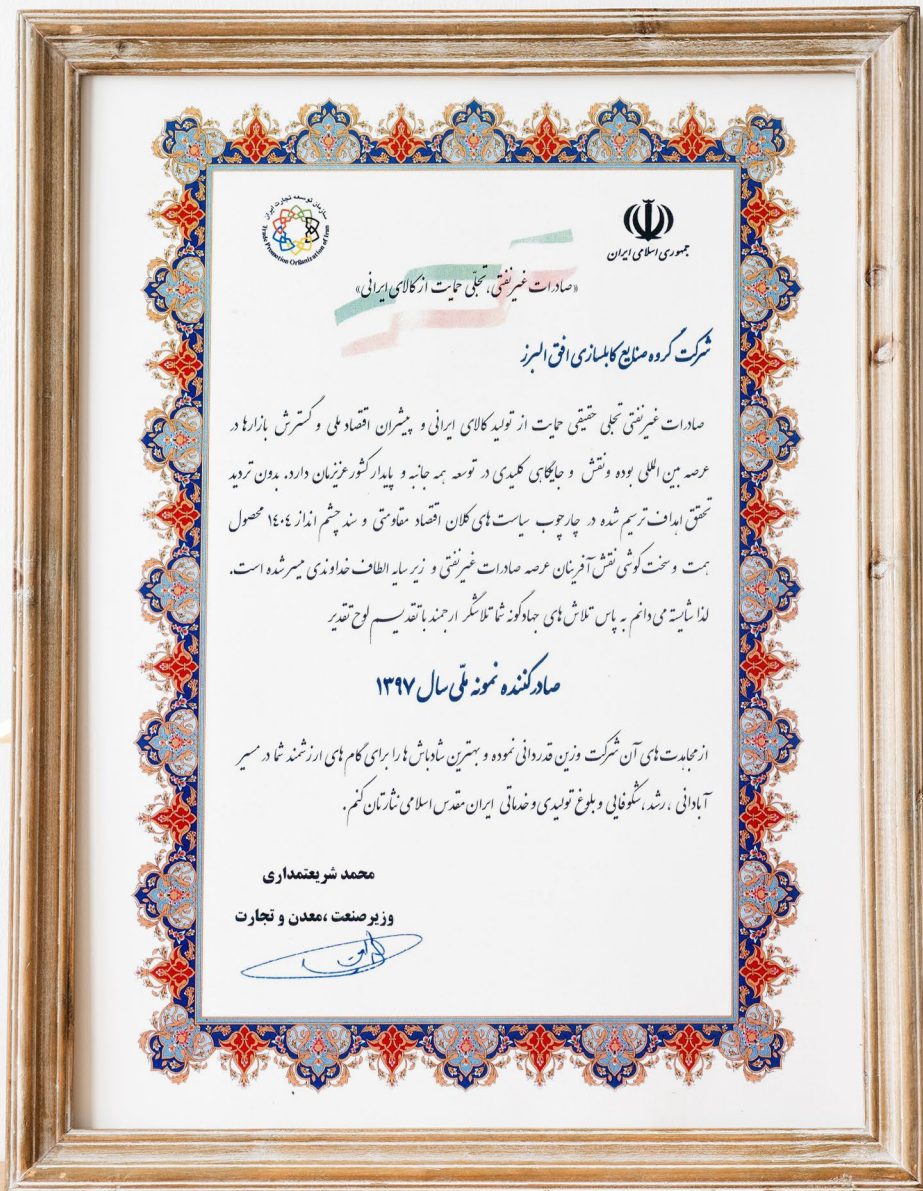 سازمان توسعه تجارت ایران
Trade Promotion Organization of Iran
جمهوری اسلامی ایران
«صادرات غیرنفتی، تجلّی حمایت از کالای ایرانی»
شرکت گروه صنایع کابلسازی افق البرز
صادرات غیرنفتی تجلی حقیقی حمایت از تولید کالای ایرانی و پیشران اقتصاد ملی و گسترش بازارها در
عرصه بین المللی بوده ونقش و جایگاهی کلیدی در توسعه همه جانبه و پایدار کشورعزیزمان دارد. بدون تردید
تحقق اهداف ترسیم شده در چارچوب سیاست های کلان اقتصاد مقاومتی و سند چشم انداز ۱۴۰۴ محصول
همت وسخت کوشی نقش آفرینان عرصه صادرات غیرنفتی و زیر سایه الطاف خداوندی میسرشده است.
لذا شایسته می دانم به پاس تلاش های جهادگونه شما تلاشگر ارجمند با تقدیـــم لوح تقدیر
صادرکننده نمونه ملّی سال ۱۳۹۷
ازمجاهدت های آن شرکت وزین قدردانی نموده و بهترین شادباش ها را برای گام های ارزشمند شما در مسیر
آبادانی ، رشد ، شکوفایی و بلوغ تولیدی و خدماتی ایران مقدس اسلامی نثارتان کنم .
محمد شریعتمداری
وزیرصنعت ،معدن و تجارت